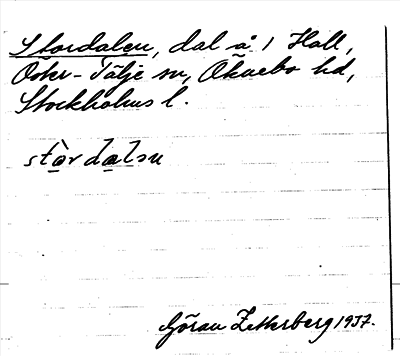 Stordalen, dal å 1 Hall,
Öster-Tälje sn, Öknebo hd,
Stockholms l.
stòrdalsn
Göran Zetterberg 1937.